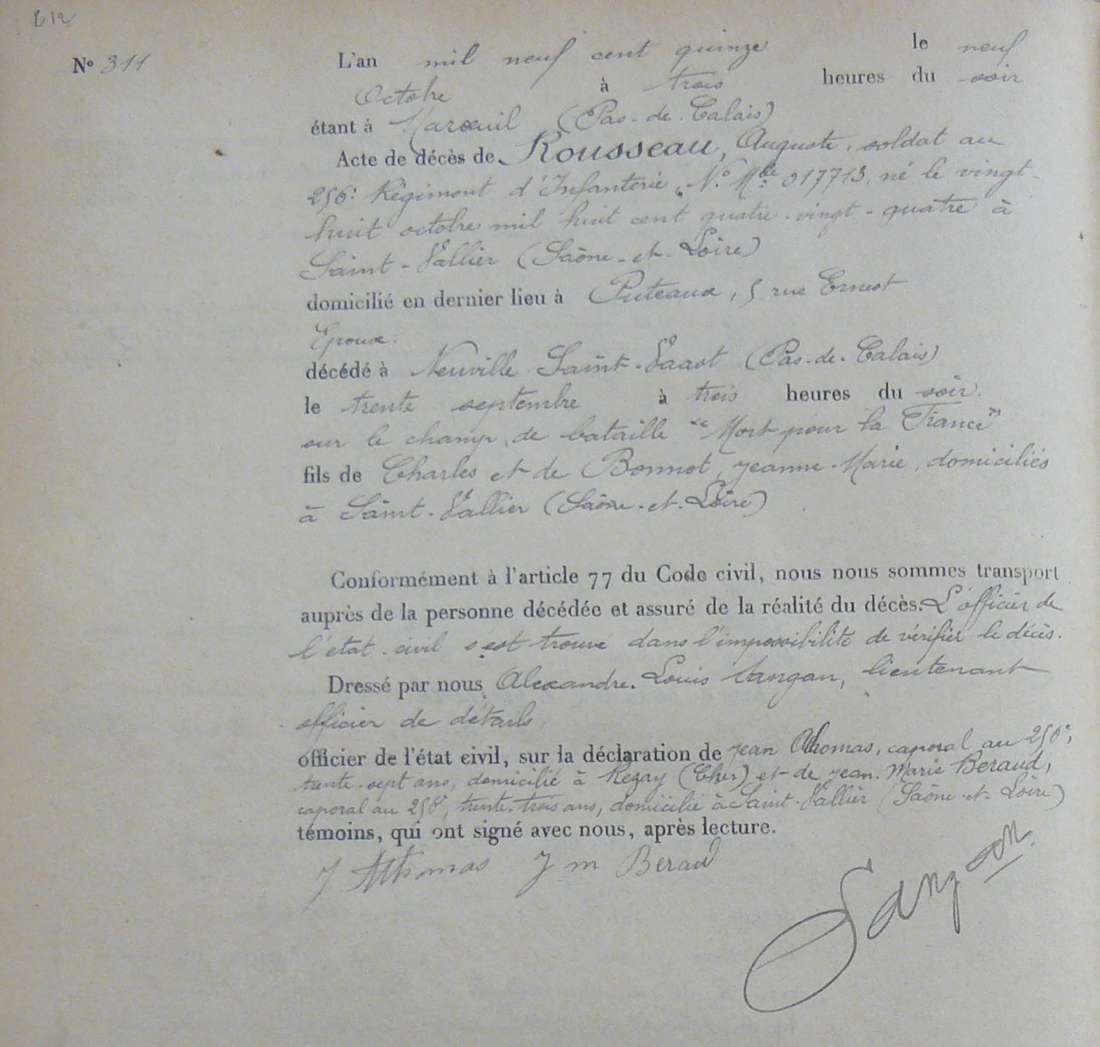 212
N° 311 L'an mil neuf cent quinze le neuf
Octobre à trois heures du soir
étant à Maroeuil (Pas-de-Calais)
Acte de décès de Rousseau, Auguste, soldat au
256e Régiment d'Infanterie, N° Mle 017713, né le vingt-
huit octobre mil huit cent quatre-vingt-quatre à
Saint-Vallier (Saône-et-Loire)
domicilié en dernier lieu à Puteaux, 5 rue Ernest
Epoux.
décédé à Neuville Saint-Vaast (Pas-de-Calais)
le trente septembre à trois heures du soir.
sur le champ de bataille "Mort pour la France"
fils de Charles et de Bonnot, Jeanne-Marie, domiciliés
à Saint-Vallier (Saône-et-Loire)
Conformément à l'article 77 du Code civil, nous nous sommes transport
auprès de la personne décédée et assuré de la réalité du décès. L'officier de
l'état-civil s'est trouvé dans l'impossibilité de vérifier le décès.
Dressé par nous Alexandre-Louis lieutenant
officier de détails
officier de l'état civil, sur la déclaration de Jean Athomas, caporal au 256e,
trente-sept ans, domicilié à Rezay (Cher) et de Jean-Marie Beraud,
caporal au 256e, trente-trois ans, domicilié à Saint-Vallier (Saône-et-Loire)
témoins, qui ont signé avec nous, après lecture.
J Athomas J m Beraud